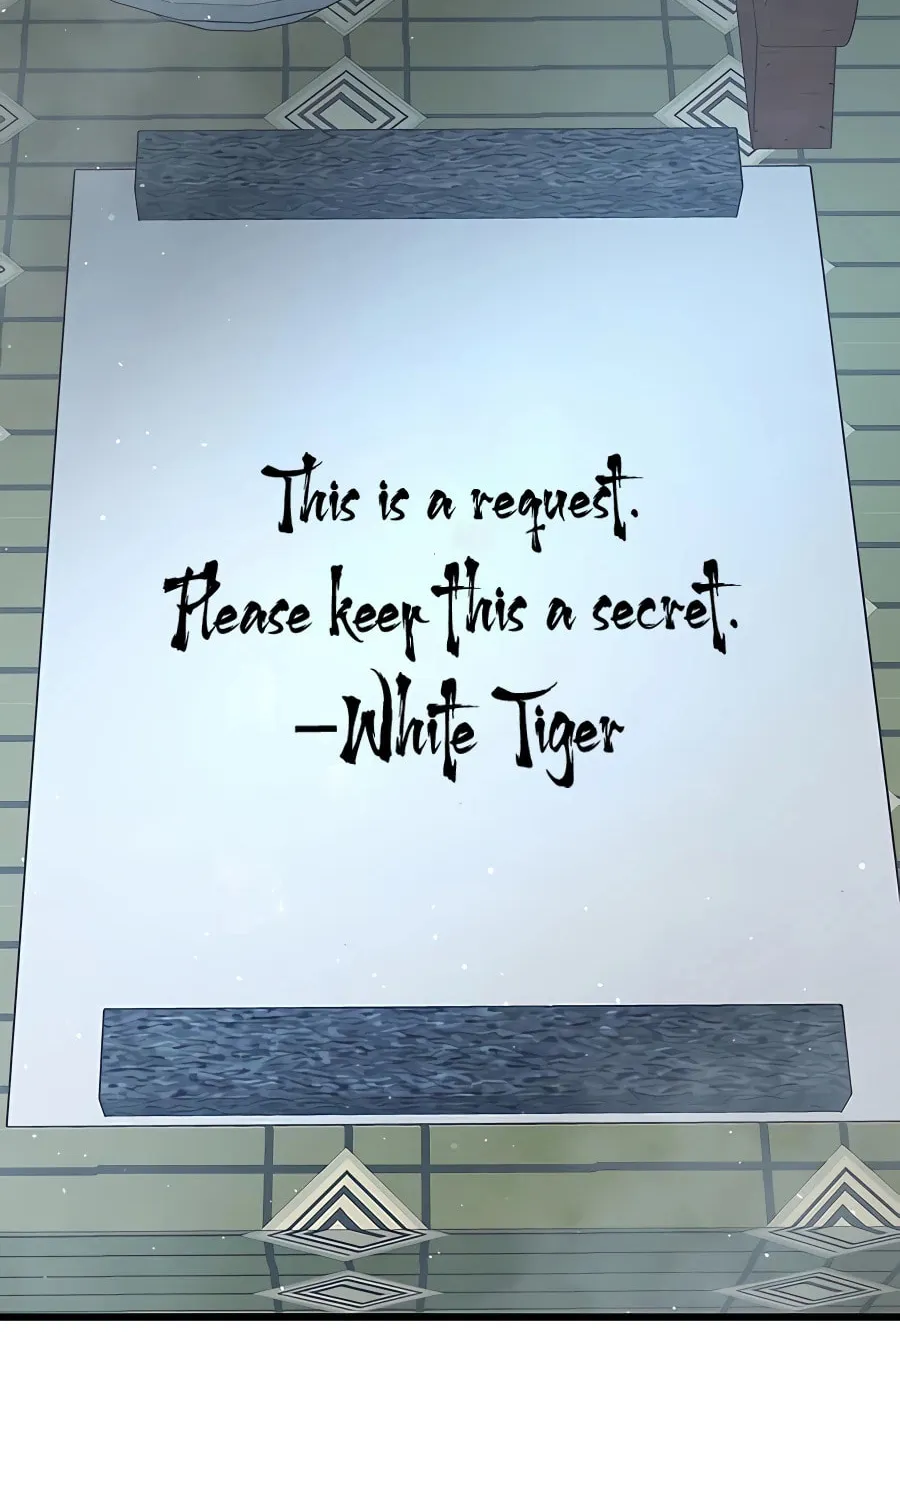 This is a request.
Please keep this a secret.
-White Tiger